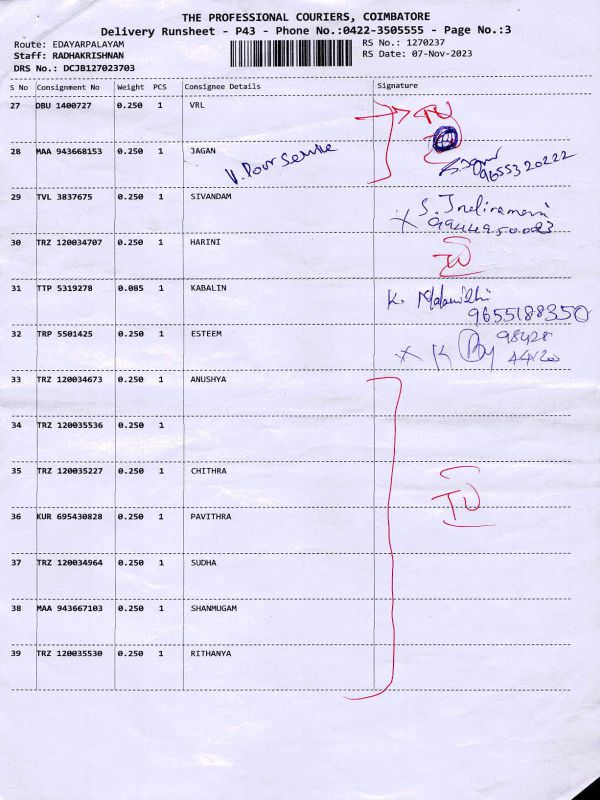 THE PROFESSIONAL COURIERS, COIMBATORE
Delivery Runsheet - P43 - Phone No.:0422-3505555 - Page No.:3
Route: EDAYARPALAYAM RS No.: 1270237
Staff: RADHAKRISHNAN RS Date: 07-Nov-2023
DRS No.: DCJB127023703
S No Consignment No Weight PCS Consignee Details Signature
27 DBU 1400727 0.250 1 VRL
28 MAA 943668153 0.250 1 JAGAN 9655320222
29 TVL 3837675 0.250 1 SIVANDAM S. Indiramani
30 TRZ 120034707 0.250 1 HARINI
31 TTP 5319278 0.085 1 KABALIN K.
9655188350
32 TRP 5501425 0.250 1 ESTEEM K 98428
44120
33 TRZ 120034673 0.250 1 ANUSHYA
34 TRZ 120035536 0.250 1
35 TRZ 120035227 0.250 1 CHITHRA
36 KUR 695430828 0.250 1 PAVITHRA
37 TRZ 120034964 0.250 1 SUDHA
38 MAA 943667103 0.250 1 SHANMUGAM
39 TRZ 120035530 0.250 1 RITHANYA